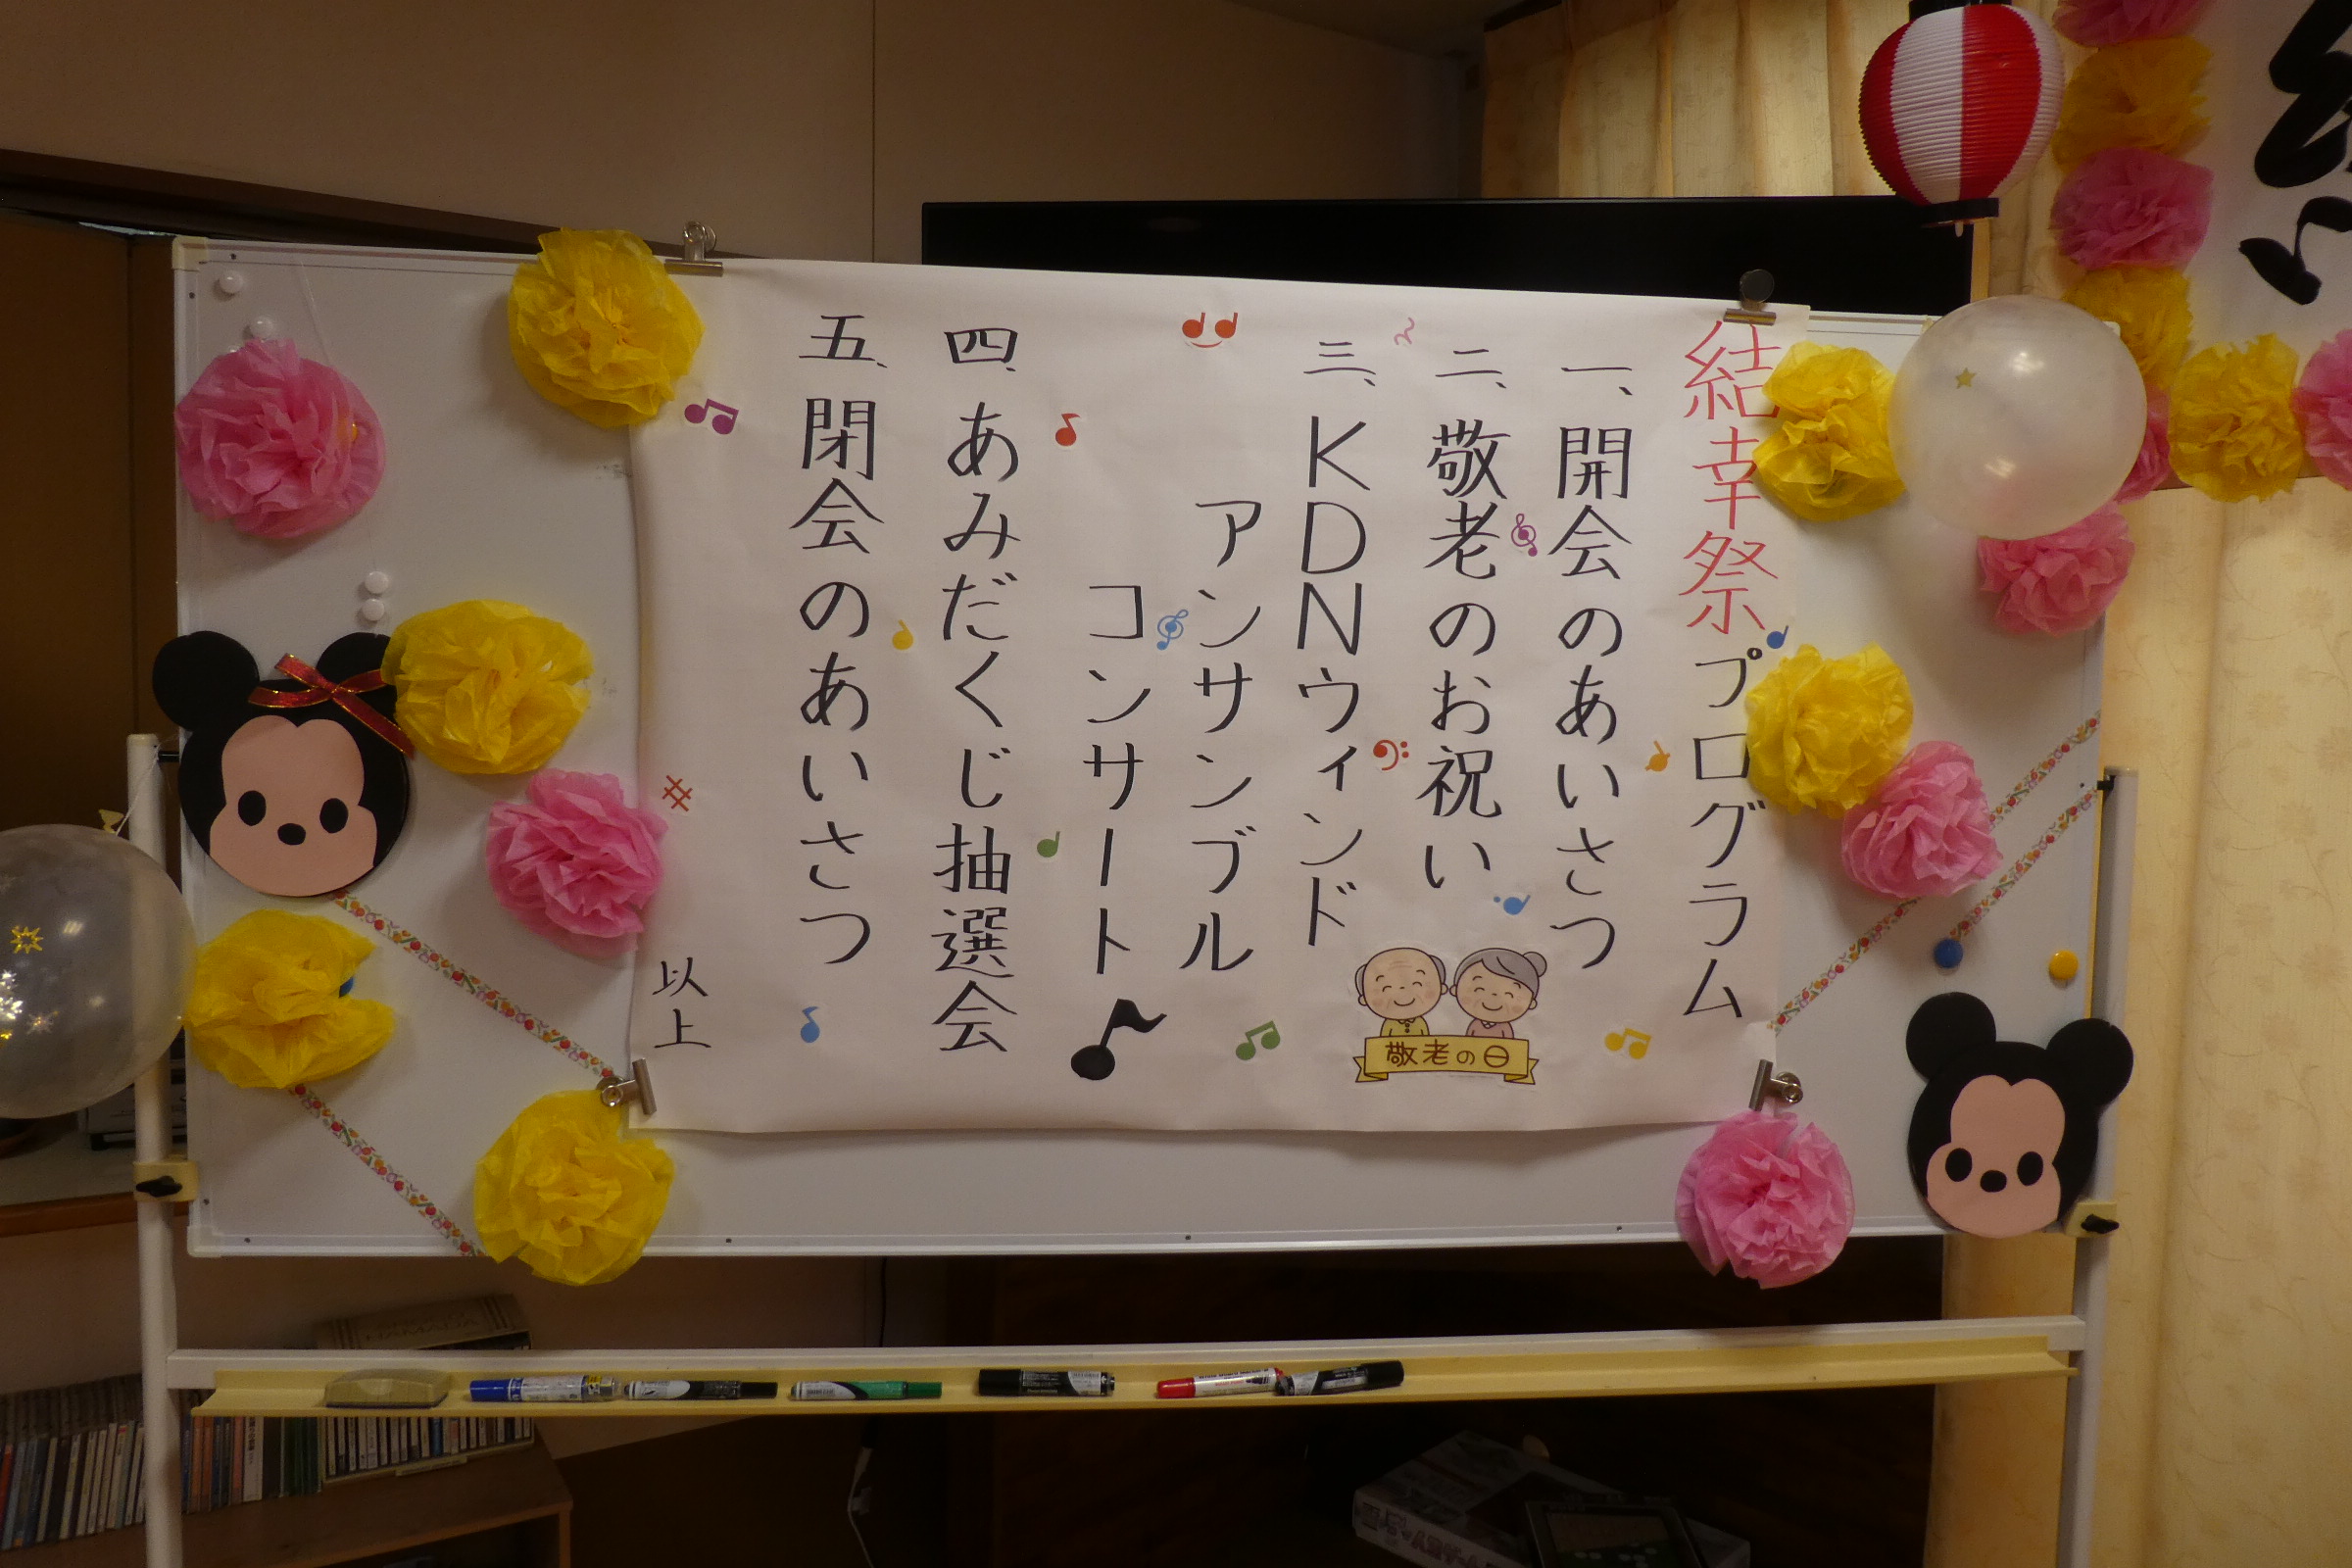 結幸祭プログラム
一、開会のあいさつ
二、敬老のお祝い
三、KDNウィンド
アンサンブル
コンサート
四、あみだくじ抽選会
五、閉会のあいさつ
以上
敬老の日